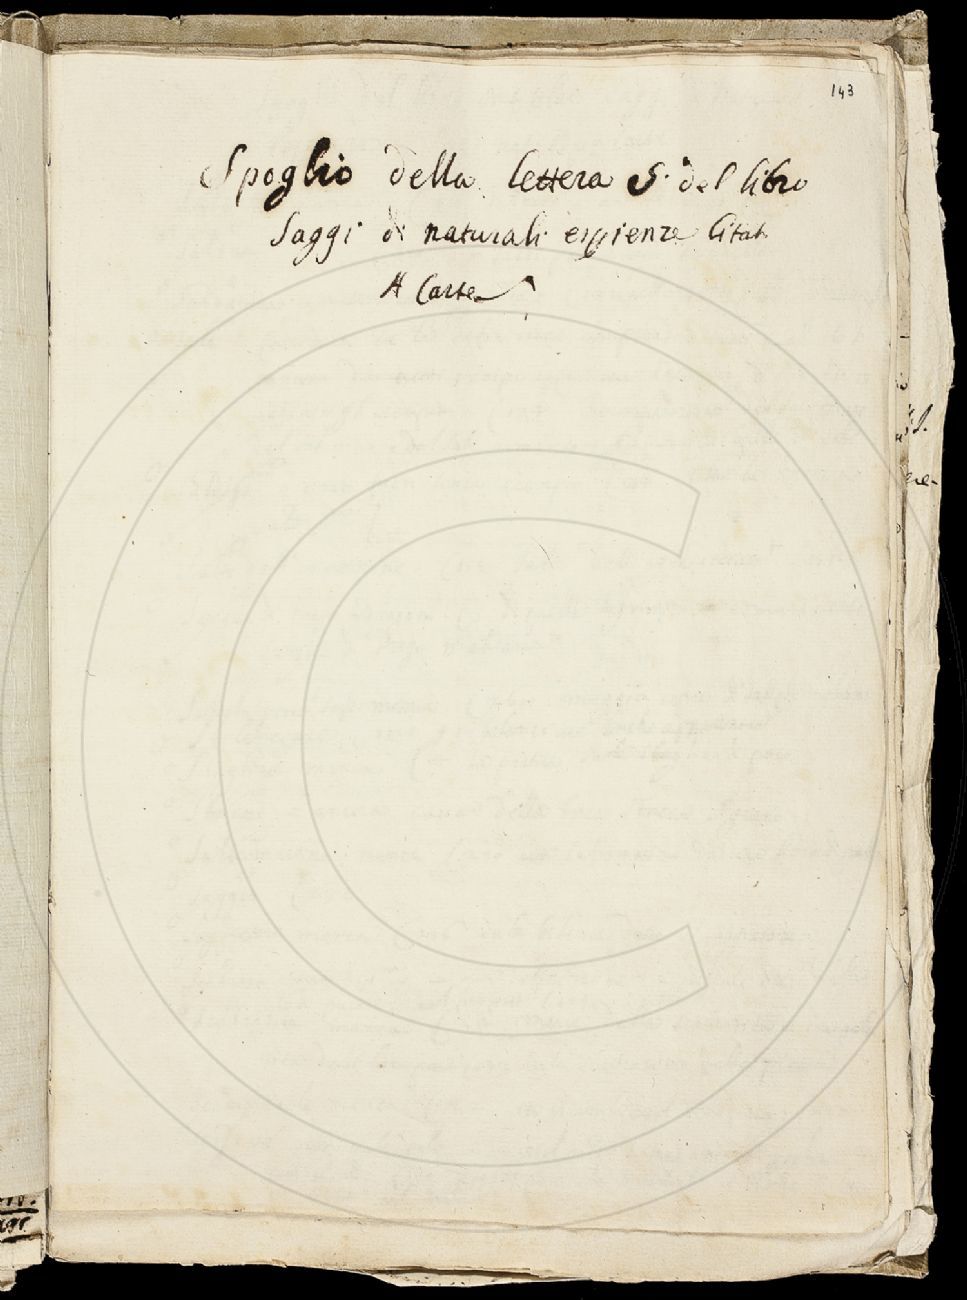 143
Spoglio della lettera S. del libro
Saggi di naturali esp̱ienze Citat.
A Carte